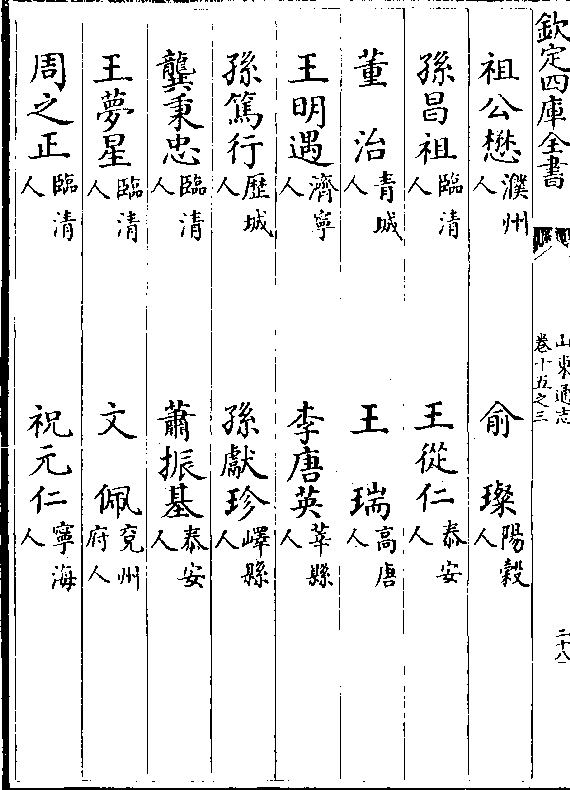 欽定四庫全書
山東通志
卷十五之三
二十八
祖公懋濮州人
俞璨陽榖人
孫昌祖臨清人
王從仁泰安人
董治青城人
王瑞高唐人
王明遇濟寧人
李唐英莘縣人
孫篤行歷城人
孫獻珍嶧縣人
龔秉忠臨清人
蕭振基泰安人
王夢星臨清人
文佩兗州府人
周之正臨清人
祝元仁寧海人